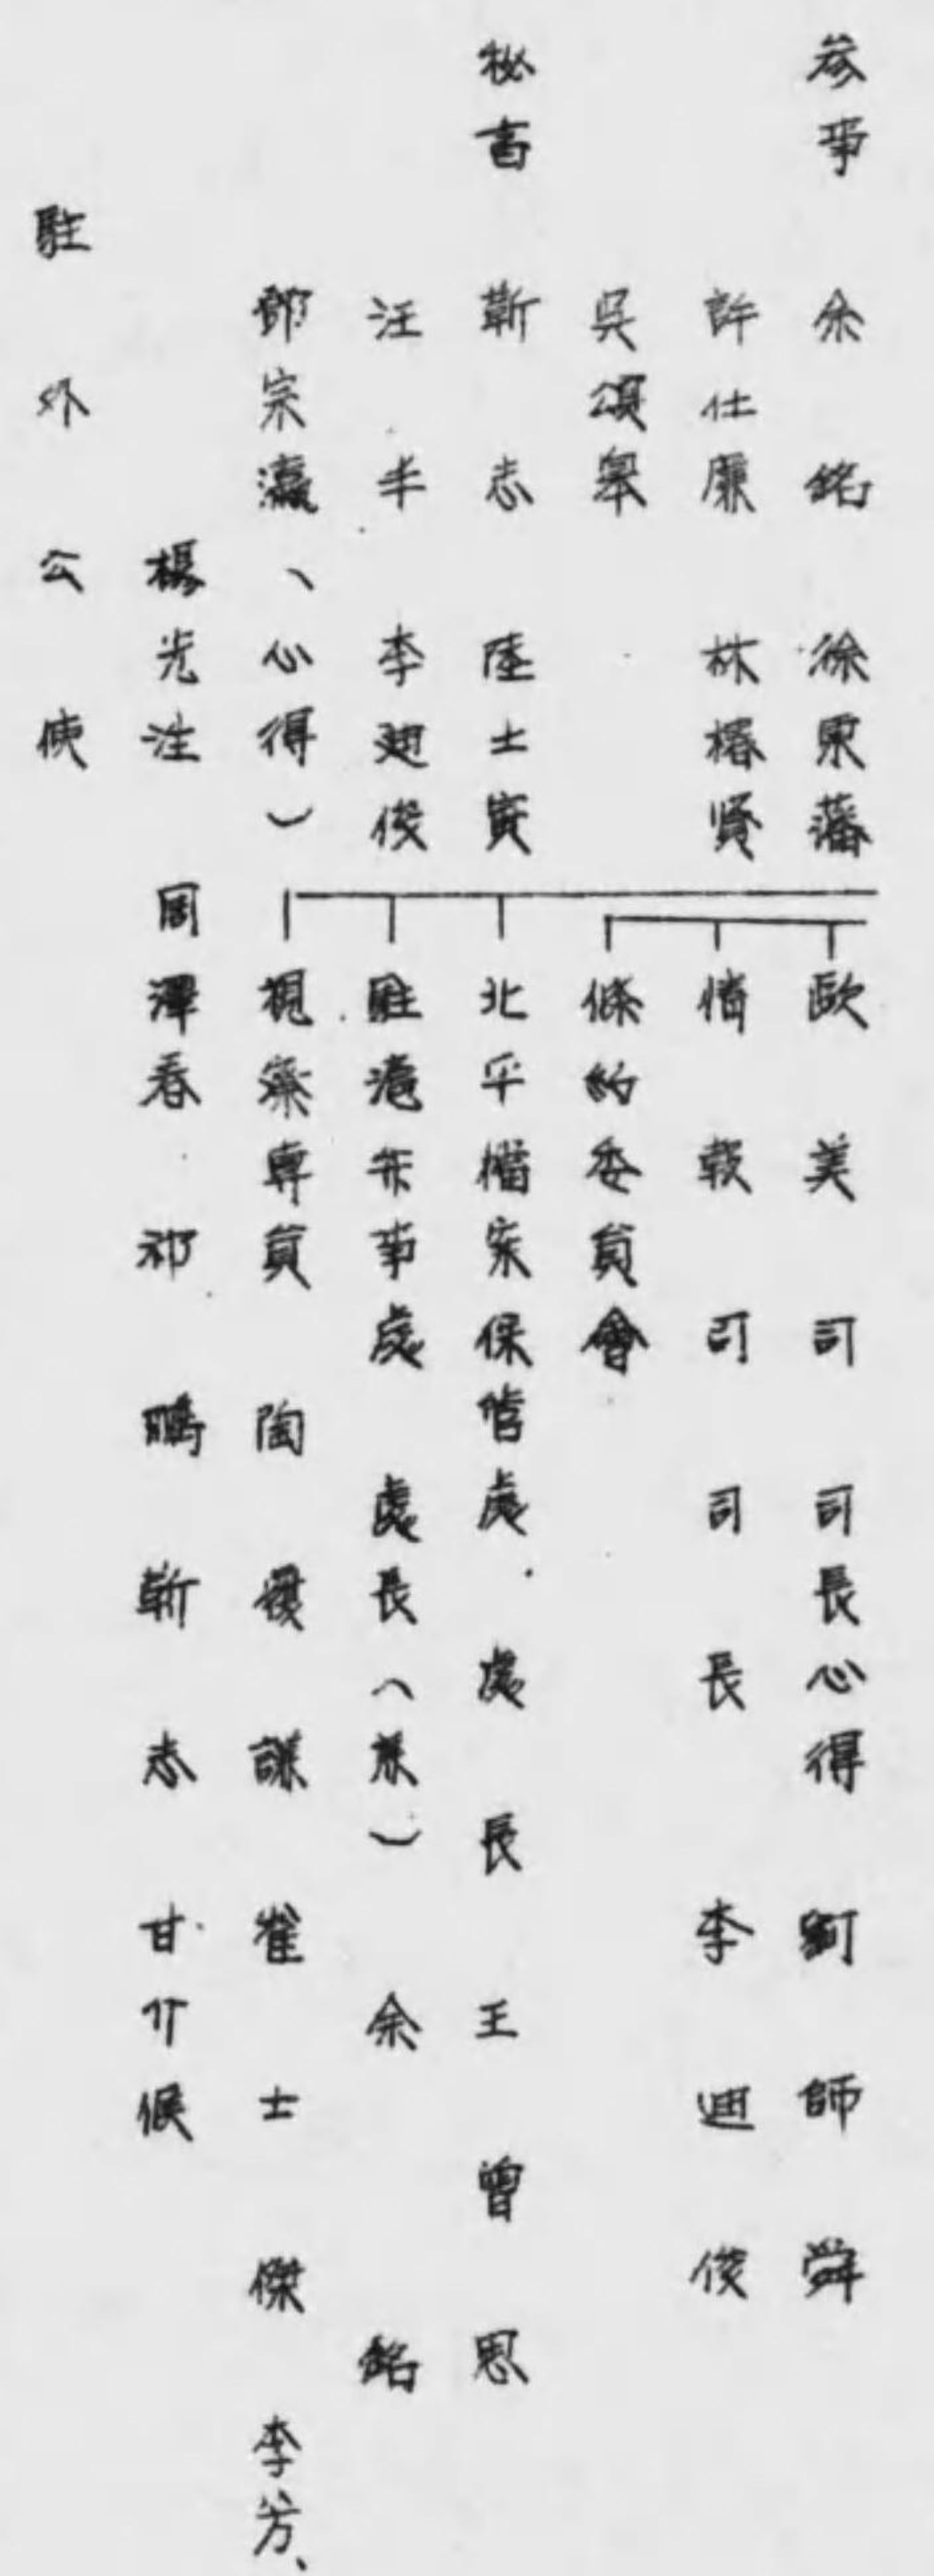 參事 余銘 徐東藩 歐美司 司長心得 劉師舜
許仕廉 林椿賢 情報司 司長 李迪俊
吳頌皋 條約委員會
秘書 靳志 陸士寅 北平檔案保管處 處長 王曾思
汪丰 李迪俊 駐滬弁事處 處長(兼) 余銘
鄧宗瀛(心得) 視察專員 陶履謙 崔士傑 李芳、
楊光泩 周澤春 祁鵬 靳志 甘介侯
駐外公使